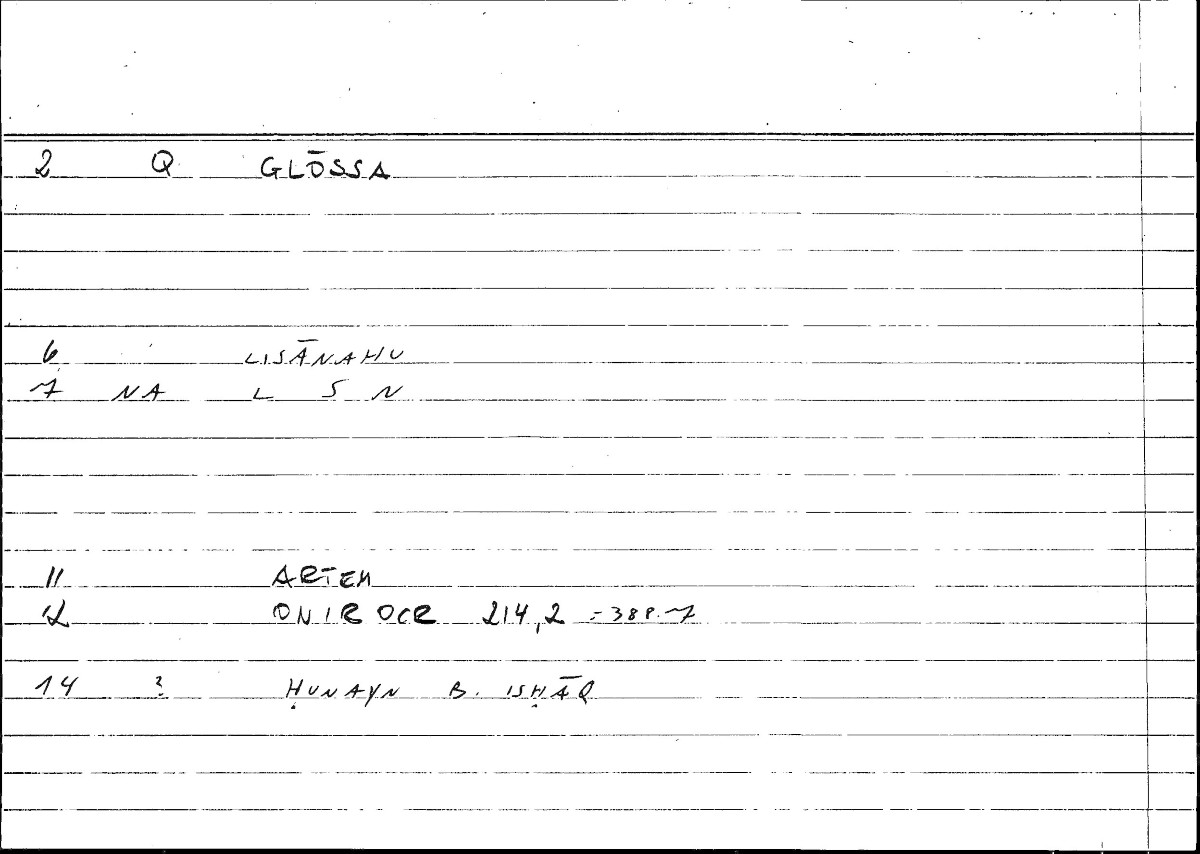 2 Q GLŌSSA
6 LISĀNAHU
7 NA L S N
11 ARTEM
12 ONIROCR 214,2 = 388.7
14 ? ḤUNAYN B. ISḤĀQ